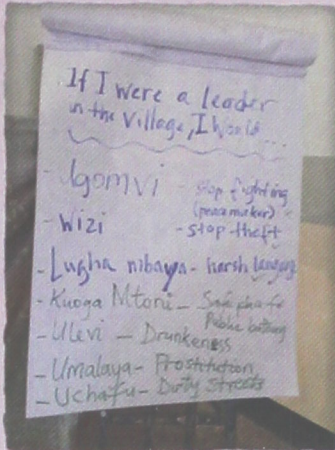 If I were a leader
in the village, I would ...
- Ugomvi - stop fighting
(peacemaker)
- Wizi - stop theft
- Lugha mbaya - harsh language
- Kuoga Mtoni - Safe place for
Public bathing
- Ulevi - Drunkeness
- Umalaya - Prostitution
- Uchafu - Dirty Streets